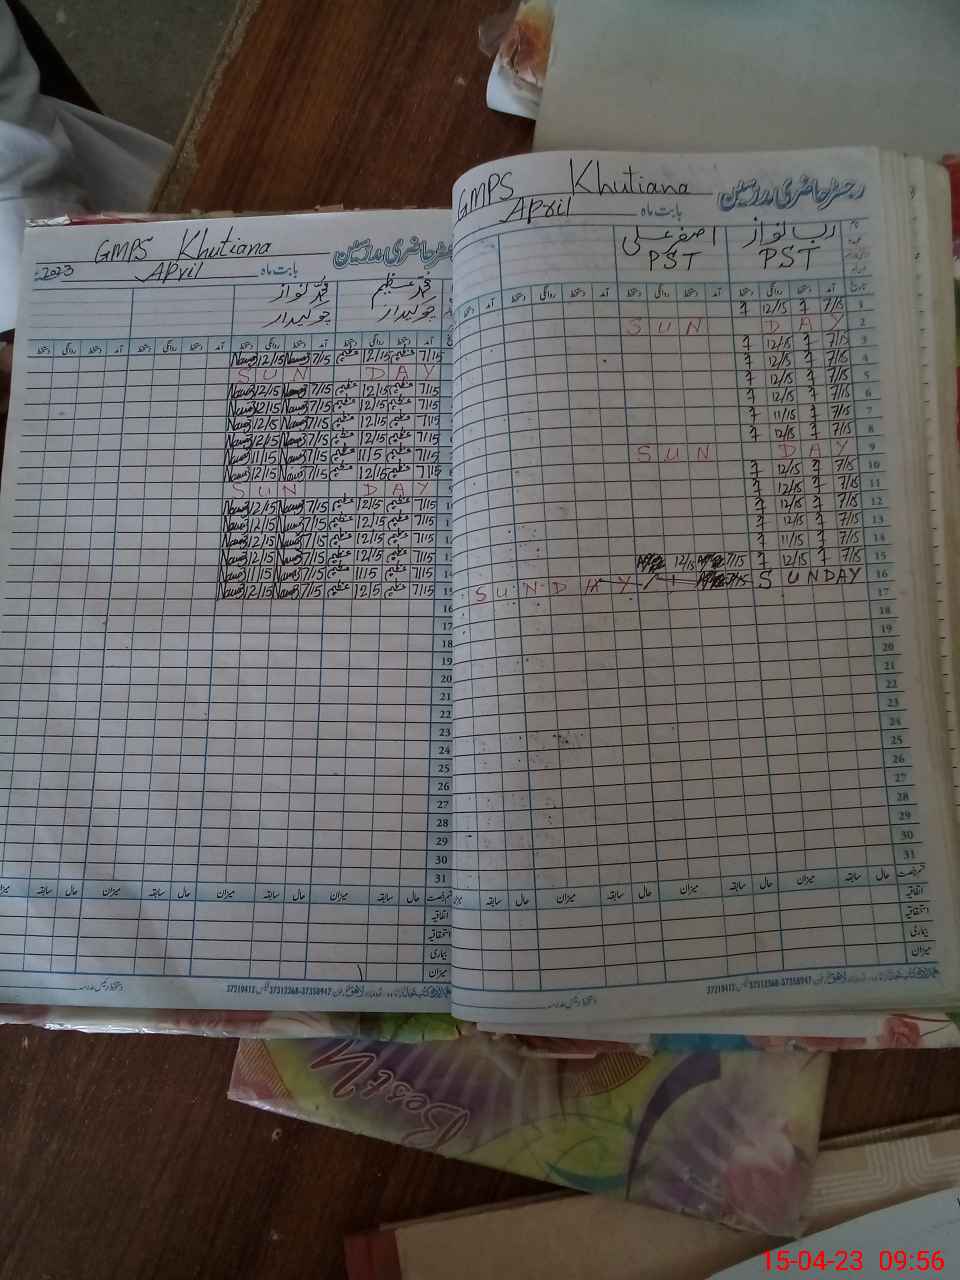 GMPS Khutiana رجسٹر حاضری مدرسین
2023 April بابت ماہ
محمد نواز محمد عظیم
چوکیدار چوکیدار
دستخط روانگی دستخط آمد دستخط روانگی دستخط آمد دستخط روانگی دستخط آمد دستخط روانگی دستخط آمد
Nawaz 12/15 Nawaz 7/15 عظیم 12/15 عظیم 7/15
SUN DAY
Nawaz 12/15 Nawaz 7/15 عظیم 12/15 عظیم 7/15
Nawaz 12/15 Nawaz 7/15 عظیم 12/15 عظیم 7/15
Nawaz 12/15 Nawaz 7/15 عظیم 12/15 عظیم 7/15
Nawaz 12/15 Nawaz 7/15 عظیم 12/15 عظیم 7/15
Nawaz 11/15 Nawaz 7/15 عظیم 11/15 عظیم 7/15
Nawaz 12/15 Nawaz 7/15 عظیم 12/15 عظیم 7/15
SUN DAY
Nawaz 12/15 Nawaz 7/15 عظیم 12/15 عظیم 7/15
Nawaz 12/15 Nawaz 7/15 عظیم 12/15 عظیم 7/15
Nawaz 12/15 Nawaz 7/15 عظیم 12/15 عظیم 7/15
Nawaz 12/15 Nawaz 7/15 عظیم 12/15 عظیم 7/15
Nawaz 11/15 Nawaz 7/15 عظیم 11/15 عظیم 7/15
Nawaz 12/15 Nawaz 7/15 عظیم 12/15 عظیم 7/15 15
16
17
18
19
20
21
22
23
24
25
26
27
28
29
30
31
میزان سابقہ حال میزان سابقہ حال میزان سابقہ حال میزان سابقہ حال
اتفاقیہ
استحقاقیہ
بیماری
میزان
37219412 37312368-37358947
GMPS Khutiana رجسٹر حاضری مدرسین
April بابت ماہ
اصغر علی رب نواز
PST PST
دستخط روانگی دستخط آمد دستخط روانگی دستخط آمد تاریخ
12/15 7/15 1
SUN DAY 2
12/15 7/15 3
12/15 7/15 4
12/15 7/15 5
12/15 7/15 6
11/15 7/15 7
12/15 7/15 8
SUN DAY 9
12/15 7/15 10
12/15 7/15 11
12/15 7/15 12
12/15 7/15 13
11/15 7/15 14
12/15 7/15 12/15 7/15 15
SUNDAY SUNDAY 16
17
18
19
20
21
22
23
24
25
26
27
28
29
30
31
سابقہ حال میزان سابقہ حال میزان سابقہ حال میزان سابقہ حال
اتفاقیہ
استحقاقیہ
بیماری
میزان
37219412 37312368-37358947
Best
15-04-23 09:56